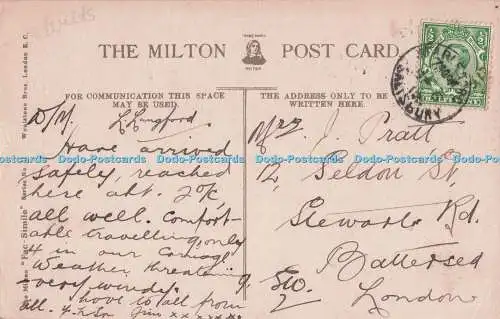 Wilts
THE MILTON POST CARD
MILTON
FOR COMMUNICATION THIS SPACE
MAY BE USED.
THE ADDRESS ONLY TO BE
WRITTEN HERE.
Wrench Bros London E.C.
The Milton "Fac-Simile" Series No
D/M. L. Langford
Have arrived
safely, reached
here abt. 2 o/c,
all well. Comfort-
able travelling, only
4 in our Carriage
Weather threaten
very windy.
love to all from
all.
Jim x x x x x x
Mrs J. Pratt
12, Seldon St,
Stewarts Rd.
Battersea
London
Dodo-Postcards Dodo-Postcards Dodo-Postcards Dodo-Postcards Dodo-Postcards Dodo-Postcards